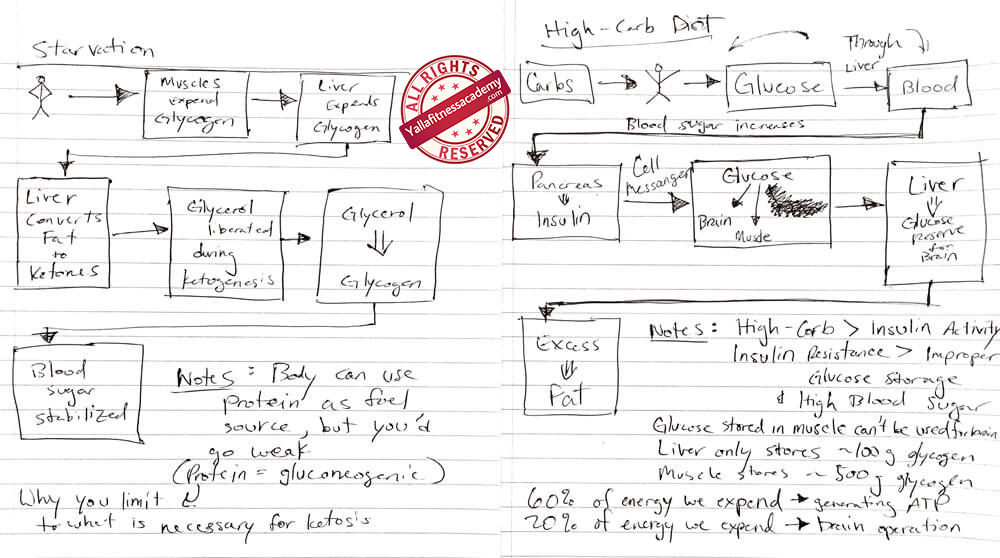 Starvation
Muscles
expend
Glycogen
Liver
Expends
Glycogen
Liver
Converts
Fat
to
Ketones
Glycerol
liberated
during
ketogenesis
Glycerol
Glycogen
Blood
sugar
stabilized
Notes: Body can use
protein as fuel
source, but you'd
go weak
(Protein = gluconeogenic)
Why you limit
to what is necessary for ketosis
ALL RIGHTS
Yallafitnessacademy.com
RESERVED
High-Carb Diet
Carbs
Glucose
Through
Liver
Blood
Blood sugar increases
Pancreas
Insulin
Cell
Messanger
Glucose
Brain
Muscle
Liver
Glucose
Reserve
for
Brain
Excess
Fat
Notes: High-Carb > Insulin Activity
Insulin Resistance > Improper
Glucose Storage
& High Blood Sugar
Glucose stored in muscle can't be used for brain
Liver only stores ~100g glycogen
Muscle stores ~500g glycogen
60% of energy we expend → generating ATP
20% of energy we expend → brain operation